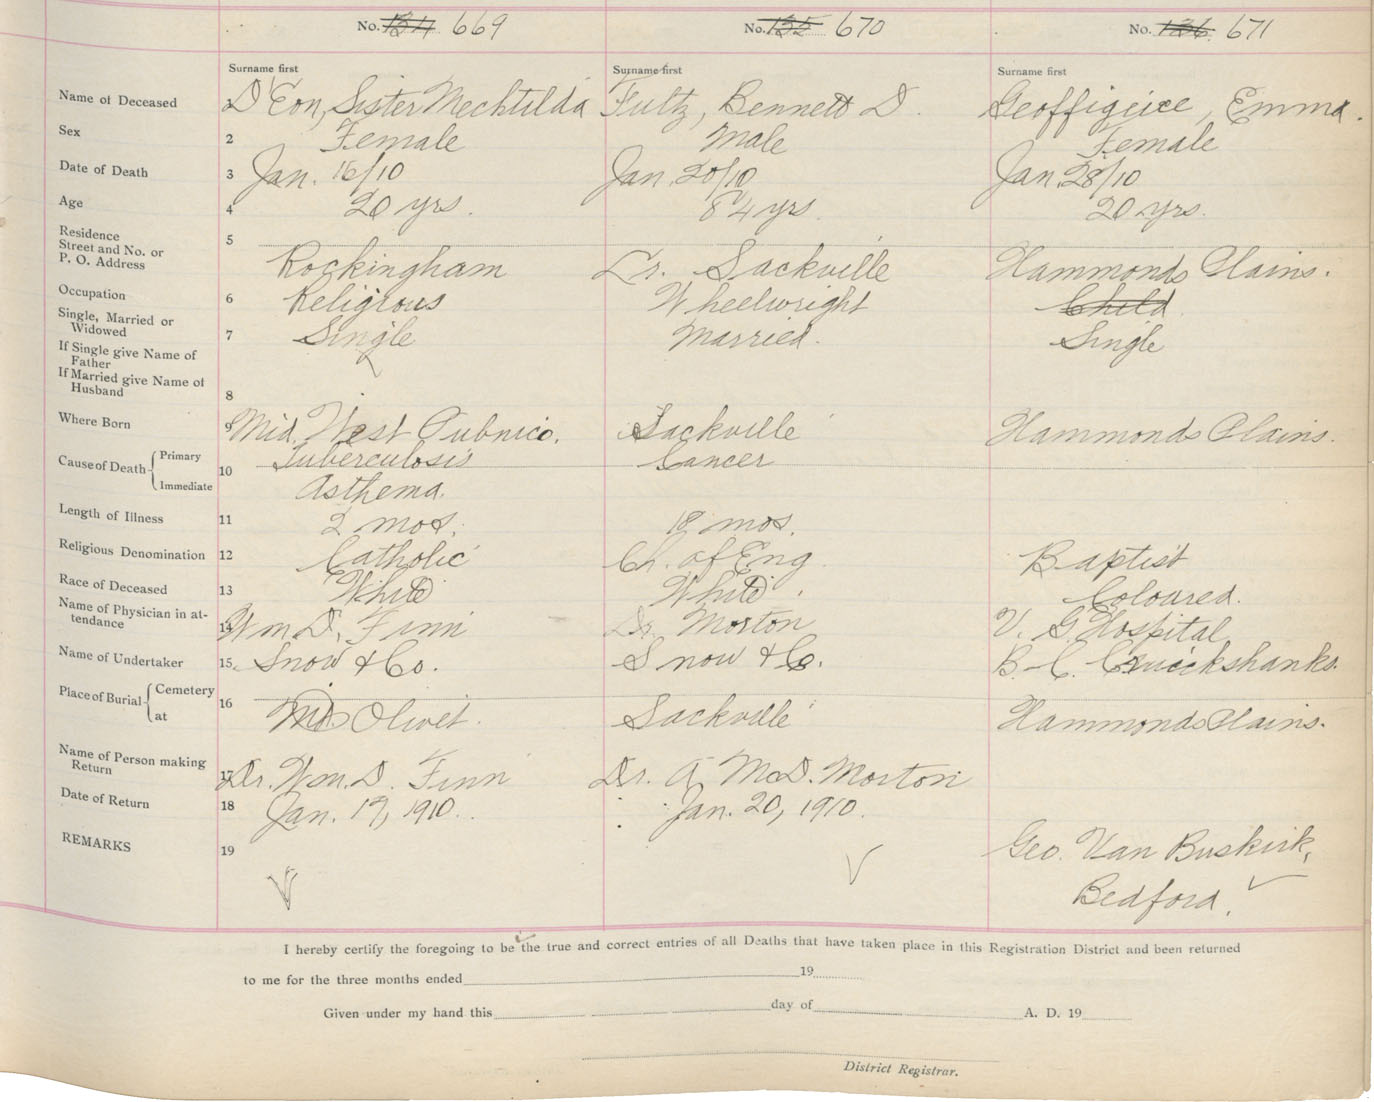 No. 134 669 No. 135 670 No. 136 671
Surname first Surname first Surname first
Name of Deceased D'Eon, Sister Mechtilda Fultz, Bennett D. Geoffigeice, Emma.
Sex 2 Female Male Female
Date of Death 3 Jan. 16/10 Jan. 20/10 Jan. 28/10
Age 4 20 yrs. 84 yrs. 20 yrs.
Residence
Street and No. or 5
P. O. Address Rockingham Lr. Sackville Hammonds Plains.
Occupation 6 Religious Wheelwright Child
Single, Married or
Widowed 7 Single Married. Single
If Single give Name of
Father
If Married give Name of
Husband 8
Where Born 9 Mid. West Pubnico. Sackville Hammonds Plains.
Cause of Death Primary 10 Tuberculosis Cancer
Immediate Asthema.
Length of Illness 11 2 mos. 18 mos.
Religious Denomination 12 Catholic Ch. of Eng. Baptist
Race of Deceased 13 White White Coloured.
Name of Physician in at-
tendance 14 Wm D. Finn Dr. Morton V. G. Hospital
Name of Undertaker 15 Snow & Co. Snow & Co. B. C. Cruickshanks.
Place of Burial Cemetery 16
at Mt Olivet. Sackville Hammonds Plains.
Name of Person making
Return 17 Dr. Wm. D. Finn Dr. A McD. Morton
Date of Return 18 Jan. 17, 1910. Jan. 20, 1910.
REMARKS 19 Geo. Van Buskirk,
Bedford.
I hereby certify the foregoing to be the true and correct entries of all Deaths that have taken place in this Registration District and been returned
to me for the three months ended 19
Given under my hand this day of A. D. 19
District Registrar.